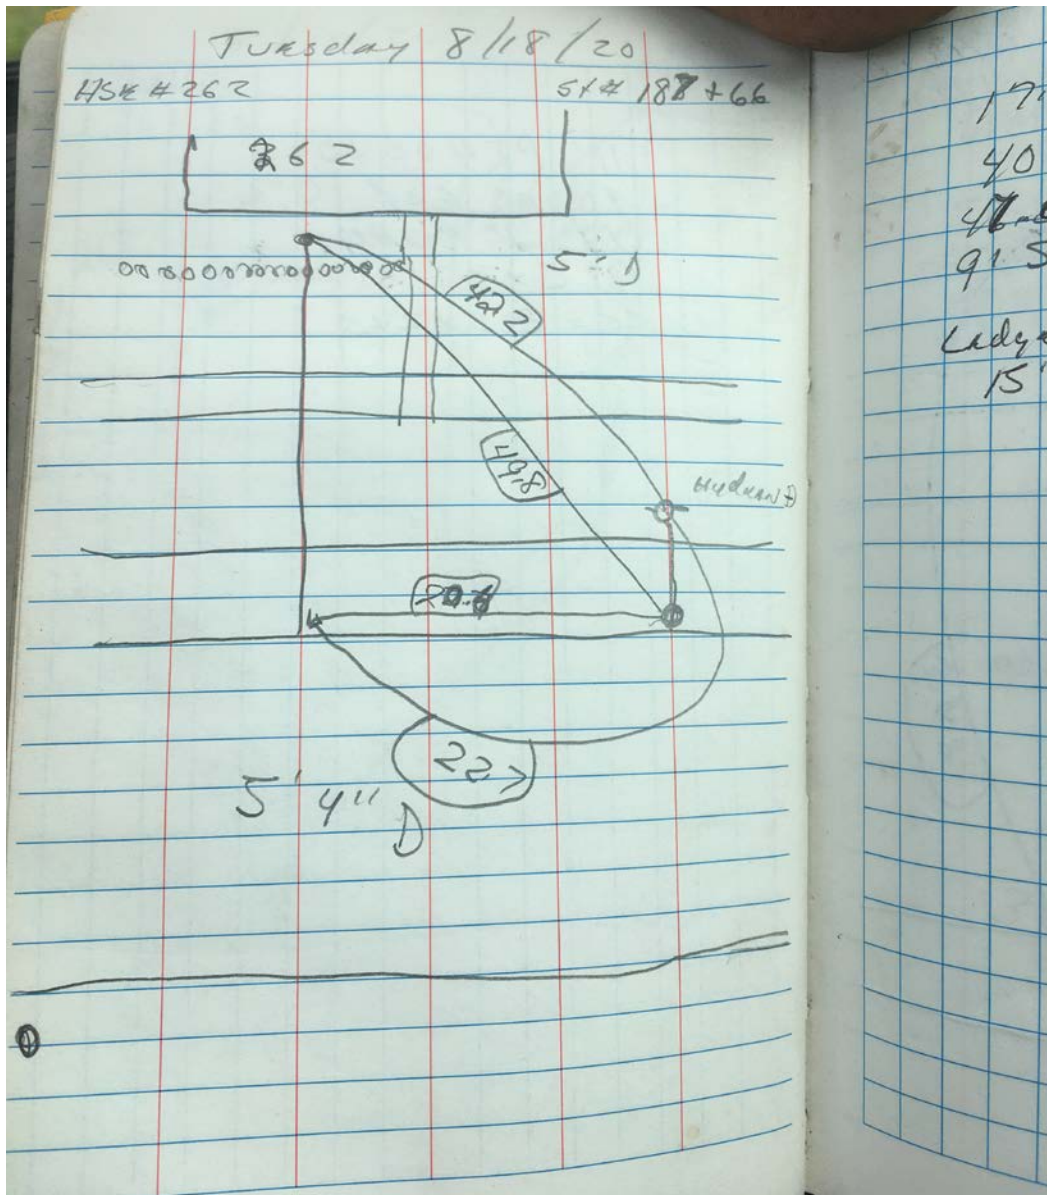 Tuesday 8/18/20
HSE #262
St# 187+66
262
5' D
42.2
49.8
Hydrant
22.7
5' 4" D
40
91.5
15'